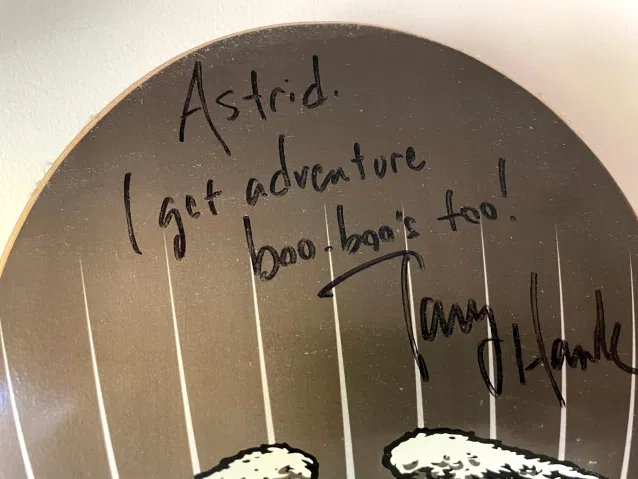 Astrid.
I get adventure
boo-boo's too!
Tony Hawk